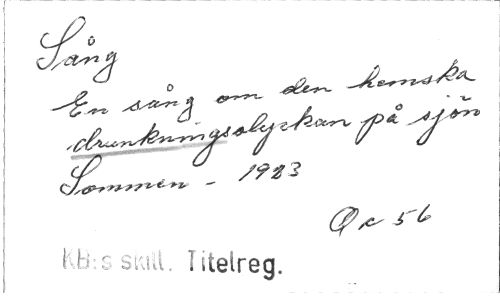 Sång
En sång om den hemska
drunkningsolyckan på sjön
Sommen - 1923
Qc 56
KB:s skill. Titelreg.